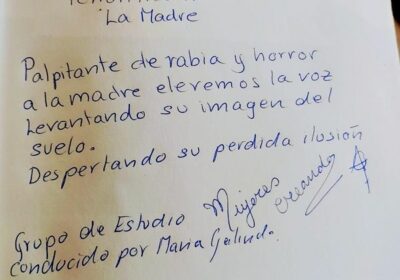 'La Madre
Palpitante de rabia y horror
a la madre elevemos la voz
Levantando su imagen del
suelo.
Despertando su perdida ilusión
Grupo de Estudio Mujeres Creando
conducido por María Galindo.